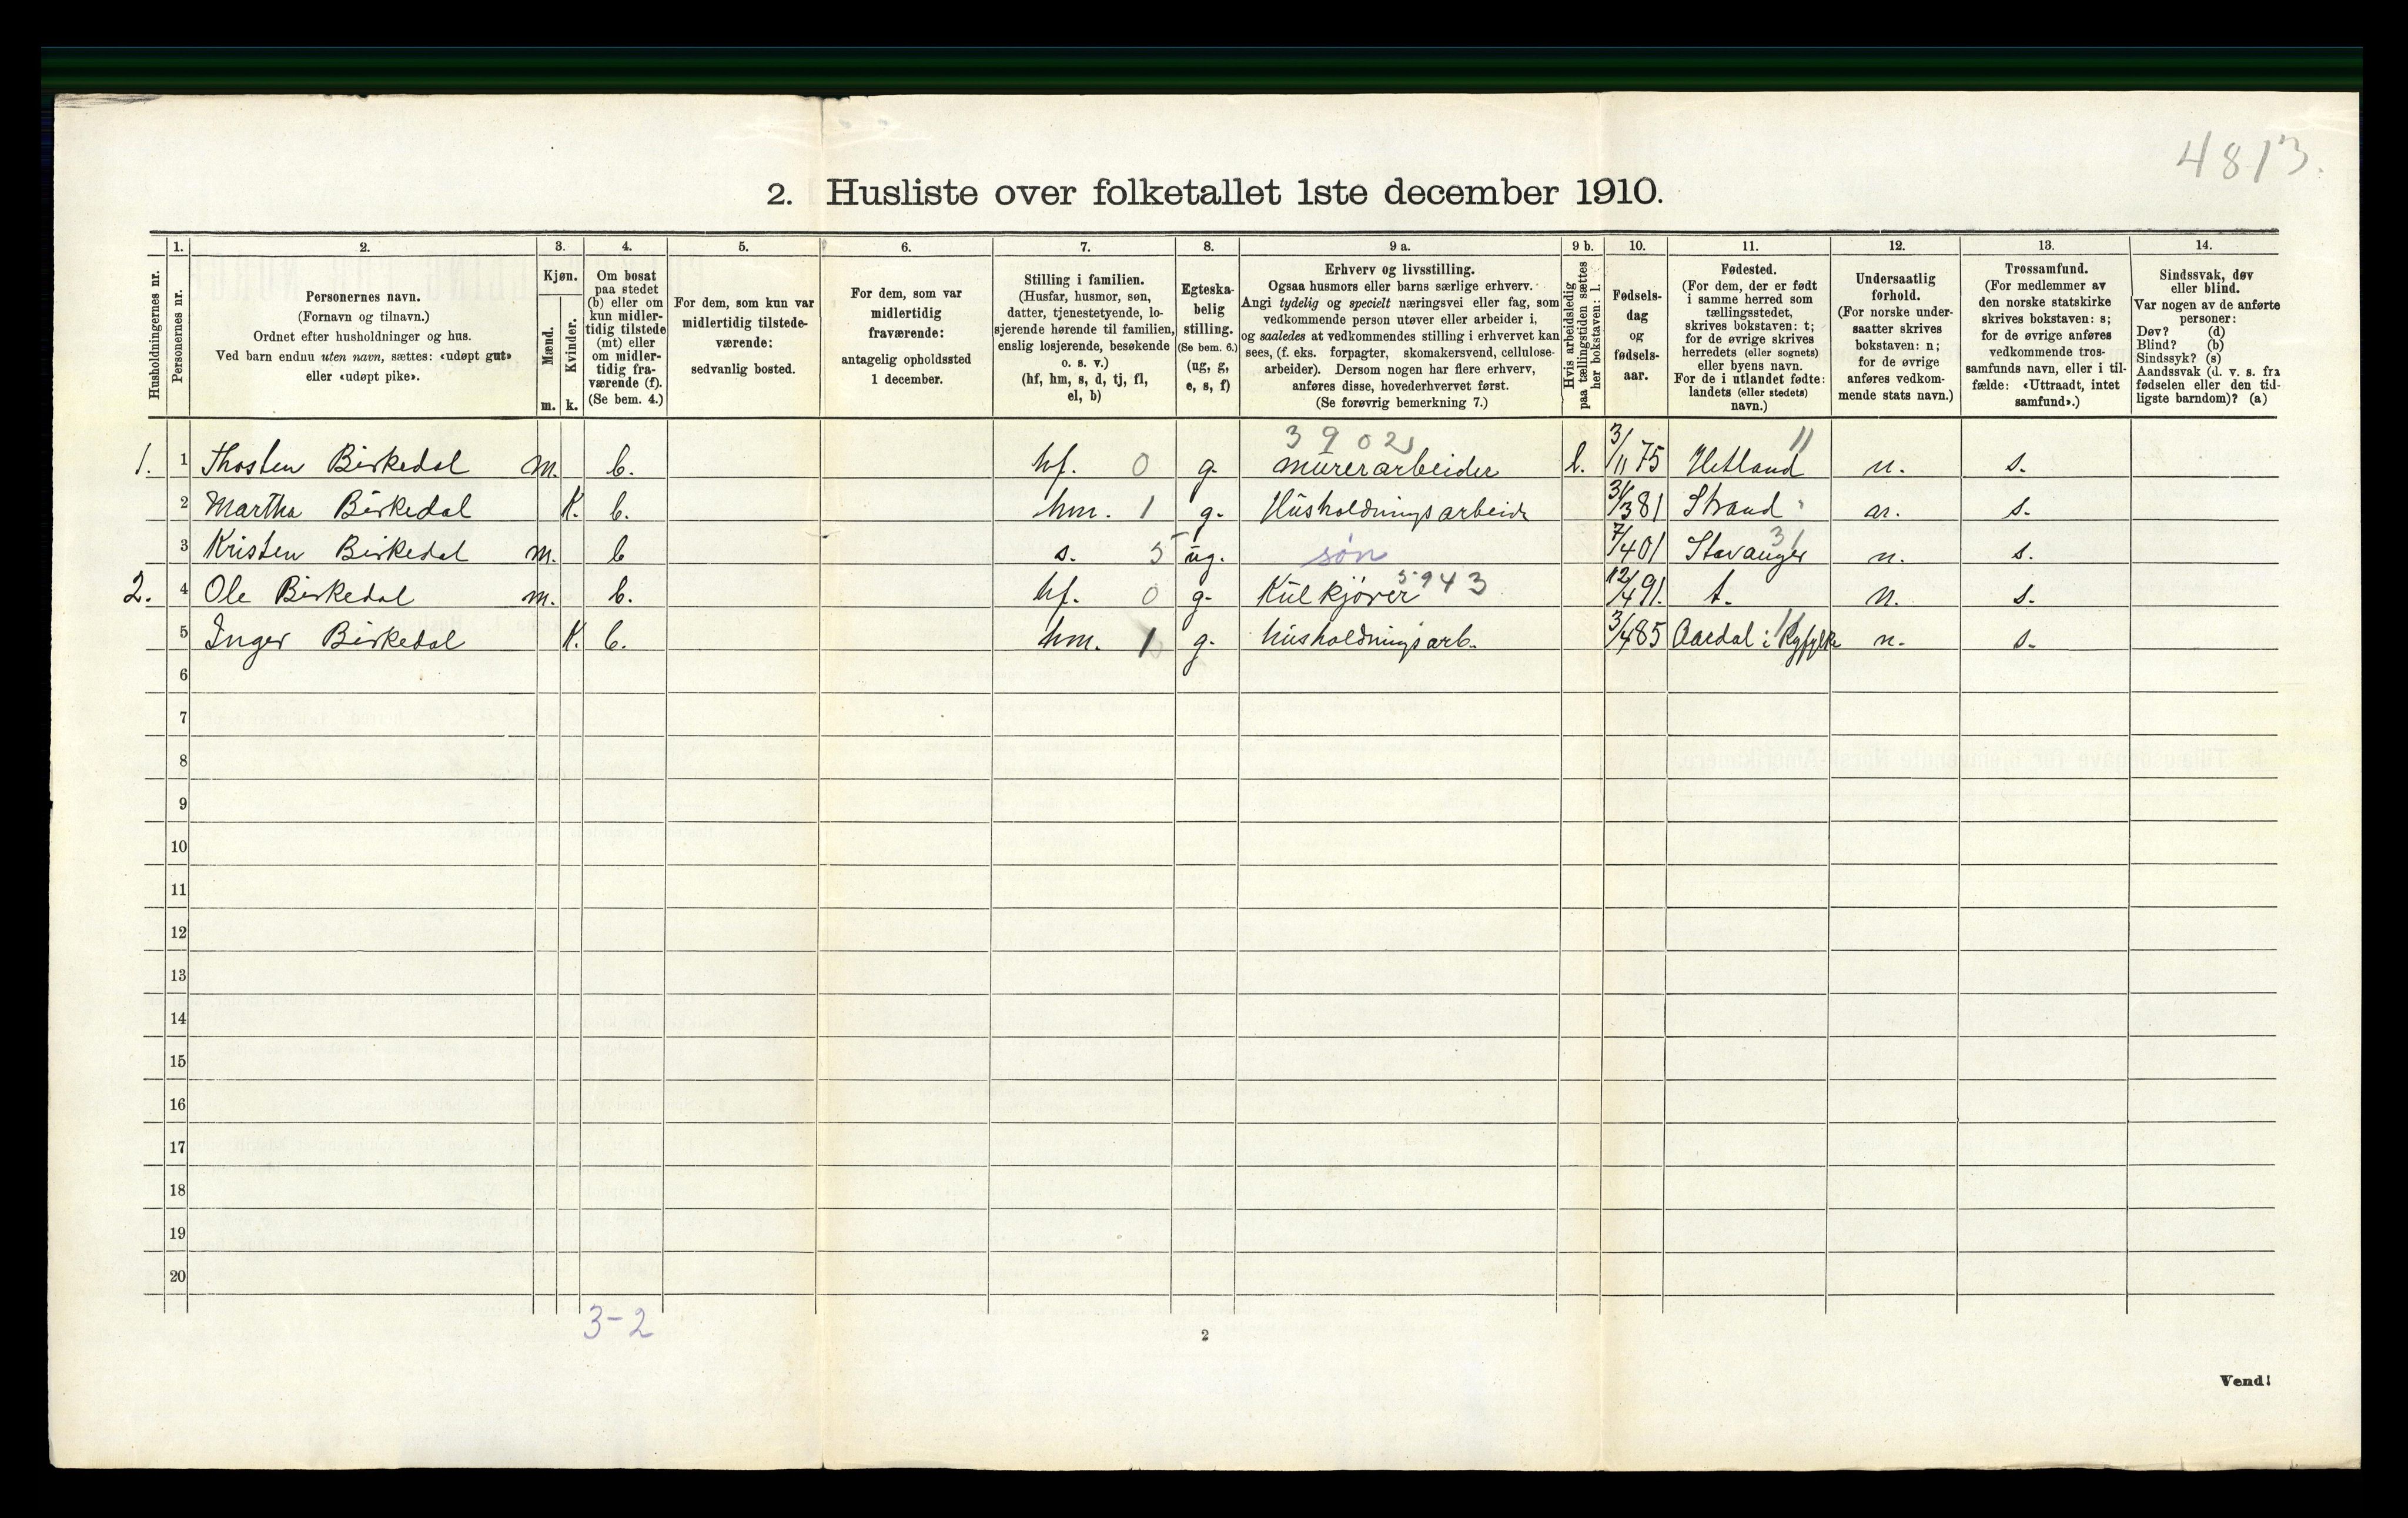 4813.
2. Husliste over folketallet 1ste december 1910.
Husholdningernes nr.
1.
Personernes nr.
2.
Personernes navn.
(Fornavn og tilnavn.)
Ordnet efter husholdninger og hus.
Ved barn endnu uten navn, sættes: «udøpt gut»
eller «udøpt pike».
3.
Kjøn.
Mænd.
Kvinder.
m. k.
4.
Om bosat
paa stedet
(b) eller om
kun midler-
tidig tilstede
(mt) eller
om midler-
tidig fra-
værende (f).
(Se bem. 4.)
5.
For dem, som kun var
midlertidig tilstede-
værende:
sedvanlig bosted.
6.
For dem, som var
midlertidig
fraværende:
antagelig opholdssted
1 december.
7.
Stilling i familien.
(Husfar, husmor, søn,
datter, tjenestetyende, lo-
sjerende hørende til familien,
enslig losjerende, besøkende
o. s. v.)
(hf, hm, s, d, tj, fl,
el, b)
8.
Egteska-
belig
stilling.
(Se bem. 6.)
(ug, g,
e, s, f)
9 a.
Erhverv og livsstilling.
Ogsaa husmors eller barns særlige erhverv.
Angi tydelig og specielt næringsvei eller fag, som
vedkommende person utøver eller arbeider i,
og saaledes at vedkommendes stilling i erhvervet kan
sees, (f. eks. forpagter, skomakersvend, cellulose-
arbeider). Dersom nogen har flere erhverv,
anføres disse, hovederhvervet først.
(Se forøvrig bemerkning 7.)
9 b.
Hvis arbeidsledig
paa tællingstiden sættes
her bokstaven: l.
10.
Fødsels-
dag
og
fødsels-
aar.
11.
Fødested.
(For dem, der er født
i samme herred som
tællingsstedet,
skrives bokstaven: t;
for de øvrige skrives
herredets (eller sognets)
eller byens navn.
For de i utlandet fødte:
landets (eller stedets)
navn.)
12.
Undersaatlig
forhold.
(For norske under-
saatter skrives
bokstaven: n;
for de øvrige
anføres vedkom-
mende stats navn.)
13.
Trossamfund.
(For medlemmer av
den norske statskirke
skrives bokstaven: s;
for de øvrige anføres
vedkommende tros-
samfunds navn, eller i til-
fælde: «Uttraadt, intet
samfund».)
14.
Sindssvak, døv
eller blind.
Var nogen av de anførte
personer:
Døv? (d)
Blind? (b)
Sindssyk? (s)
Aandssvak (d. v. s. fra
fødselen eller den tid-
ligste barndom)? (a)
3902 11
1. 1 Thosten Birkedal m. b. hf. 0 g. murerarbeider l. 3/11 75 Hetland n. s.
2 Martha Birkedal K. b. hm. 1 g. Husholdningsarbeide 31/3 81 Strand n. s.
3 Kristen Birkedal m. b s. 5 ug. søn 7/4 01 Stavanger 31 n. s.
2. 4 Ole Birkedal m. b. hf. 0 g. Kulkjører 5943 12/4 91. t. n. s.
5 Inger Birkedal K. b. hm. 1 g. husholdningsarb. 3/4 85 Aardal i Ryfylke 11 n. s.
6
7
8
9
10
11
12
13
14
15
16
17
18
19
20
3-2
2
Vend!